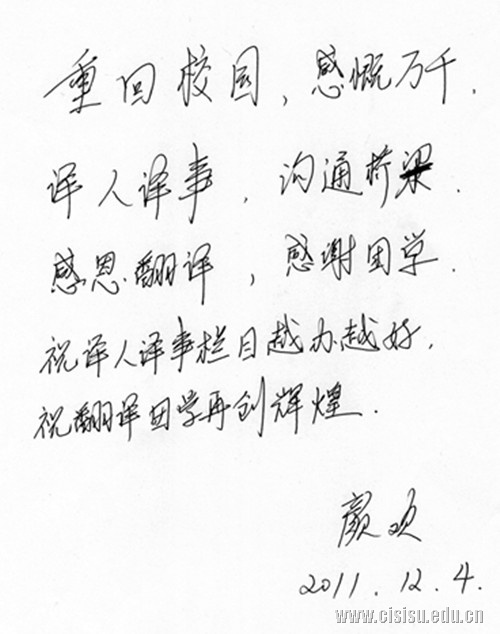 重回校园，感慨万千.
译人译事，沟通桥梁.
感恩翻译，感谢团学.
祝译人译事栏目越办越好.
祝翻译团学再创辉煌.
颜欢
2011.12.4.
www.cisisu.edu.cn